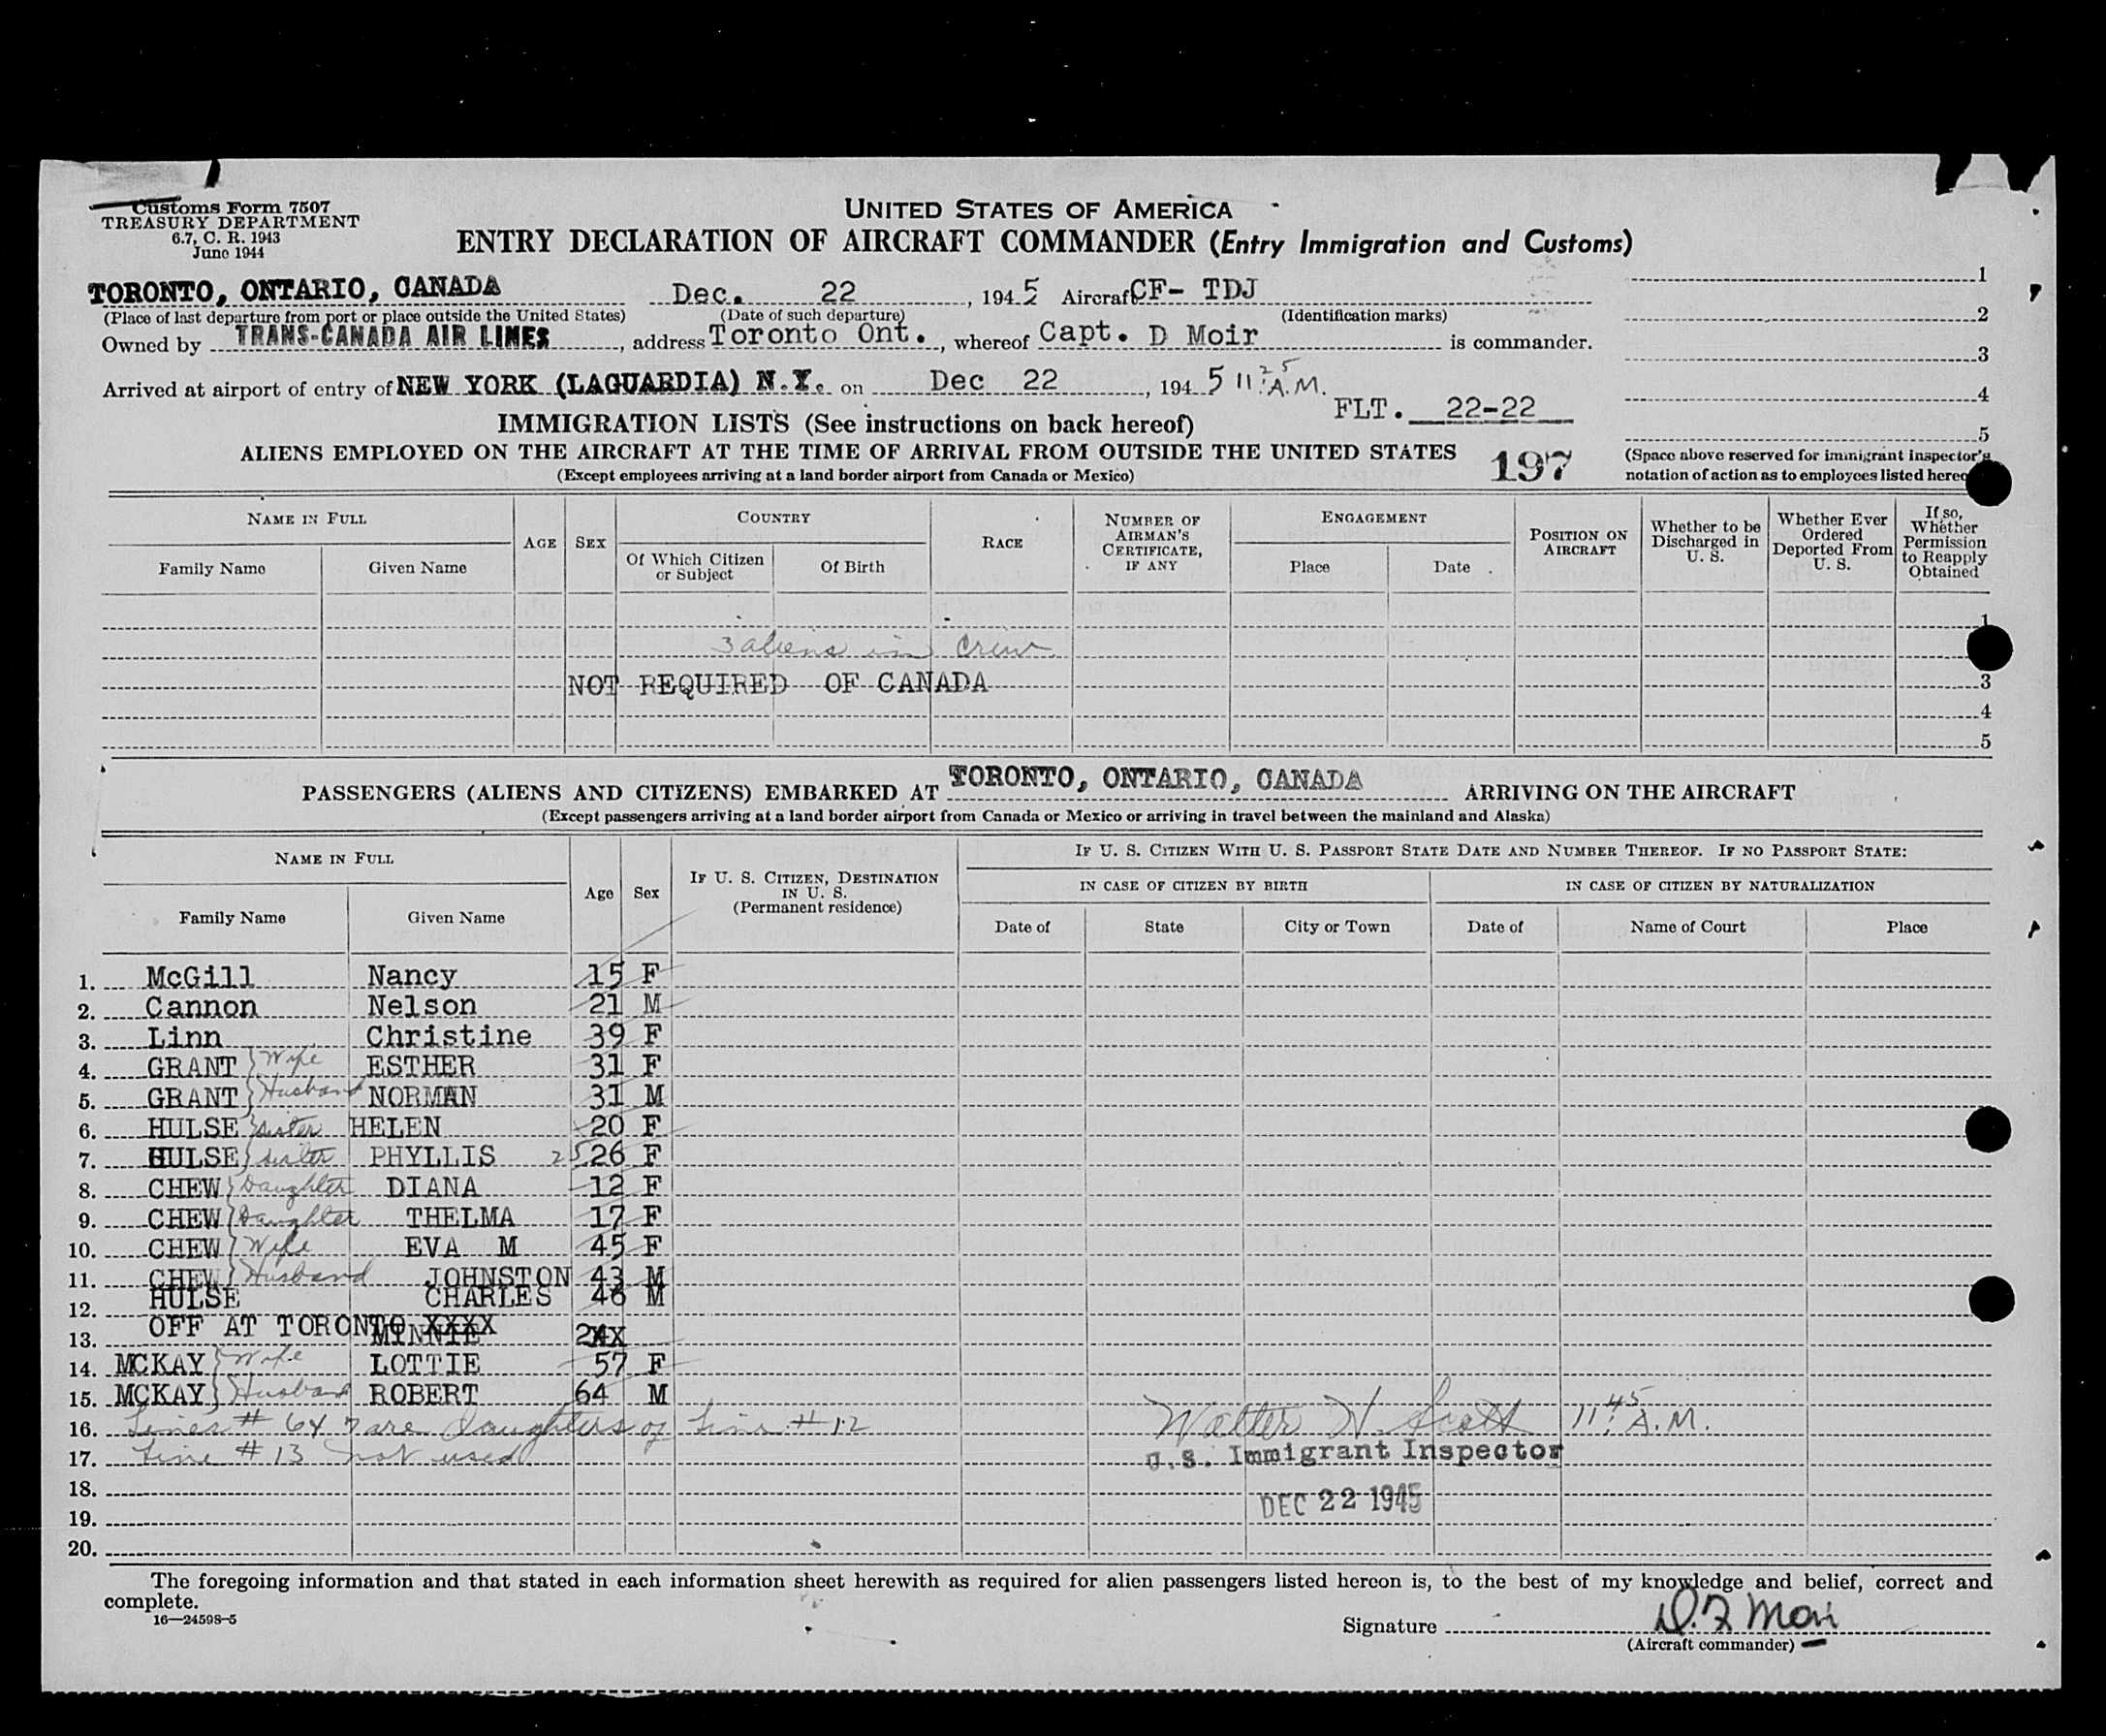 Customs Form 7507
TREASURY DEPARTMENT
6.7, C. R. 1943
June 1944
UNITED STATES OF AMERICA
ENTRY DECLARATION OF AIRCRAFT COMMANDER (Entry Immigration and Customs)
TORONTO, ONTARIO, CANADA Dec. 22, 1945 Aircraft CF- TDJ
(Place of last departure from port or place outside the United States) (Date of such departure) (Identification marks)
Owned by TRANS-CANADA AIR LINES, address Toronto Ont., whereof Capt. D Moir is commander.
Arrived at airport of entry of NEW YORK (LAGUARDIA) N.Y. on Dec 22, 1945 11:25 A.M.
FLT. 22-22
1
2
3
4
5
(Space above reserved for immigrant inspector's notation of action as to employees listed
IMMIGRATION LISTS (See instructions on back hereof)
ALIENS EMPLOYED ON THE AIRCRAFT AT THE TIME OF ARRIVAL FROM OUTSIDE THE UNITED STATES 197
(Except employees arriving at a land border airport from Canada or Mexico)
NAME IN FULL
Family Name Given Name
AGE SEX
COUNTRY
Of Which Citizen or Subject Of Birth
RACE
NUMBER OF AIRMAN'S CERTIFICATE, IF ANY
ENGAGEMENT
Place Date
POSITION ON AIRCRAFT
Whether to be Discharged in U. S.
Whether Ever Ordered Deported From U. S.
If so, Whether Permission to Reapply Obtained
1
3 aliens in crew
NOT REQUIRED OF CANADA 3
4
5
PASSENGERS (ALIENS AND CITIZENS) EMBARKED AT TORONTO, ONTARIO, CANADA ARRIVING ON THE AIRCRAFT
(Except passengers arriving at a land border airport from Canada or Mexico or arriving in travel between the mainland and Alaska)
NAME IN FULL
Family Name Given Name
Age Sex
IF U. S. CITIZEN, DESTINATION IN U. S. (Permanent residence)
IF U. S. CITIZEN WITH U. S. PASSPORT STATE DATE AND NUMBER THEREOF. IF NO PASSPORT STATE:
IN CASE OF CITIZEN BY BIRTH IN CASE OF CITIZEN BY NATURALIZATION
Date of State City or Town Date of Name of Court Place
1. McGill Nancy 15 F
2. Cannon Nelson 21 M
3. Linn Christine 39 F
4. GRANT } Wife ESTHER 31 F
5. GRANT } Husband NORMAN 31 M
6. HULSE } sister HELEN 20 F
7. HULSE } sister PHYLLIS 25 26 F
8. CHEW } Daughter DIANA 12 F
9. CHEW } Daughter THELMA 17 F
10. CHEW } Wife EVA M 45 F
11. CHEW } Husband JOHNSTON 43 M
12. HULSE CHARLES 46 M
13. OFF AT TORONTO XXXX MINNIE
14. MCKAY } Wife LOTTIE 57 F
15. MCKAY } Husband ROBERT 64 M
16. Lines # 6 & 7 are Daughters of Line # 12 Walter H. Scott 11:45 A.M.
17. Line # 13 not used U.S. Immigrant Inspector
18. DEC 22 1945
19.
20.
The foregoing information and that stated in each information sheet herewith as required for alien passengers listed hereon is, to the best of my knowledge and belief, correct and
complete.
16—24598-5
Signature D. F Moir
(Aircraft commander)